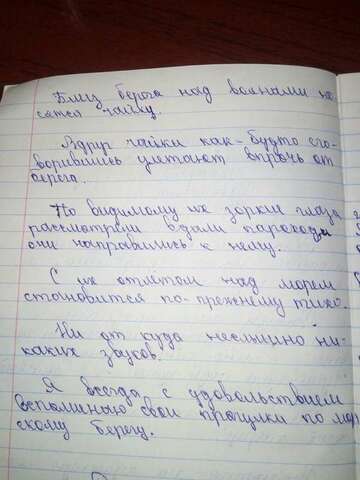 Близ берега над волнами не
сятся чайки.
Вдруг чайки как-будто сго-
ворившись улетают впрочь от
берега.
По видимому их зоркии глаза
рассмотрели вдали пароходы
они направились к нему.
С их отлётом над морем
становится по-прежнему тихо.
Ни от куда неслышно ни-
каких звуков.
Я всегда с удовольствием
вспоминаю свои прогулки по мор
скому берегу.